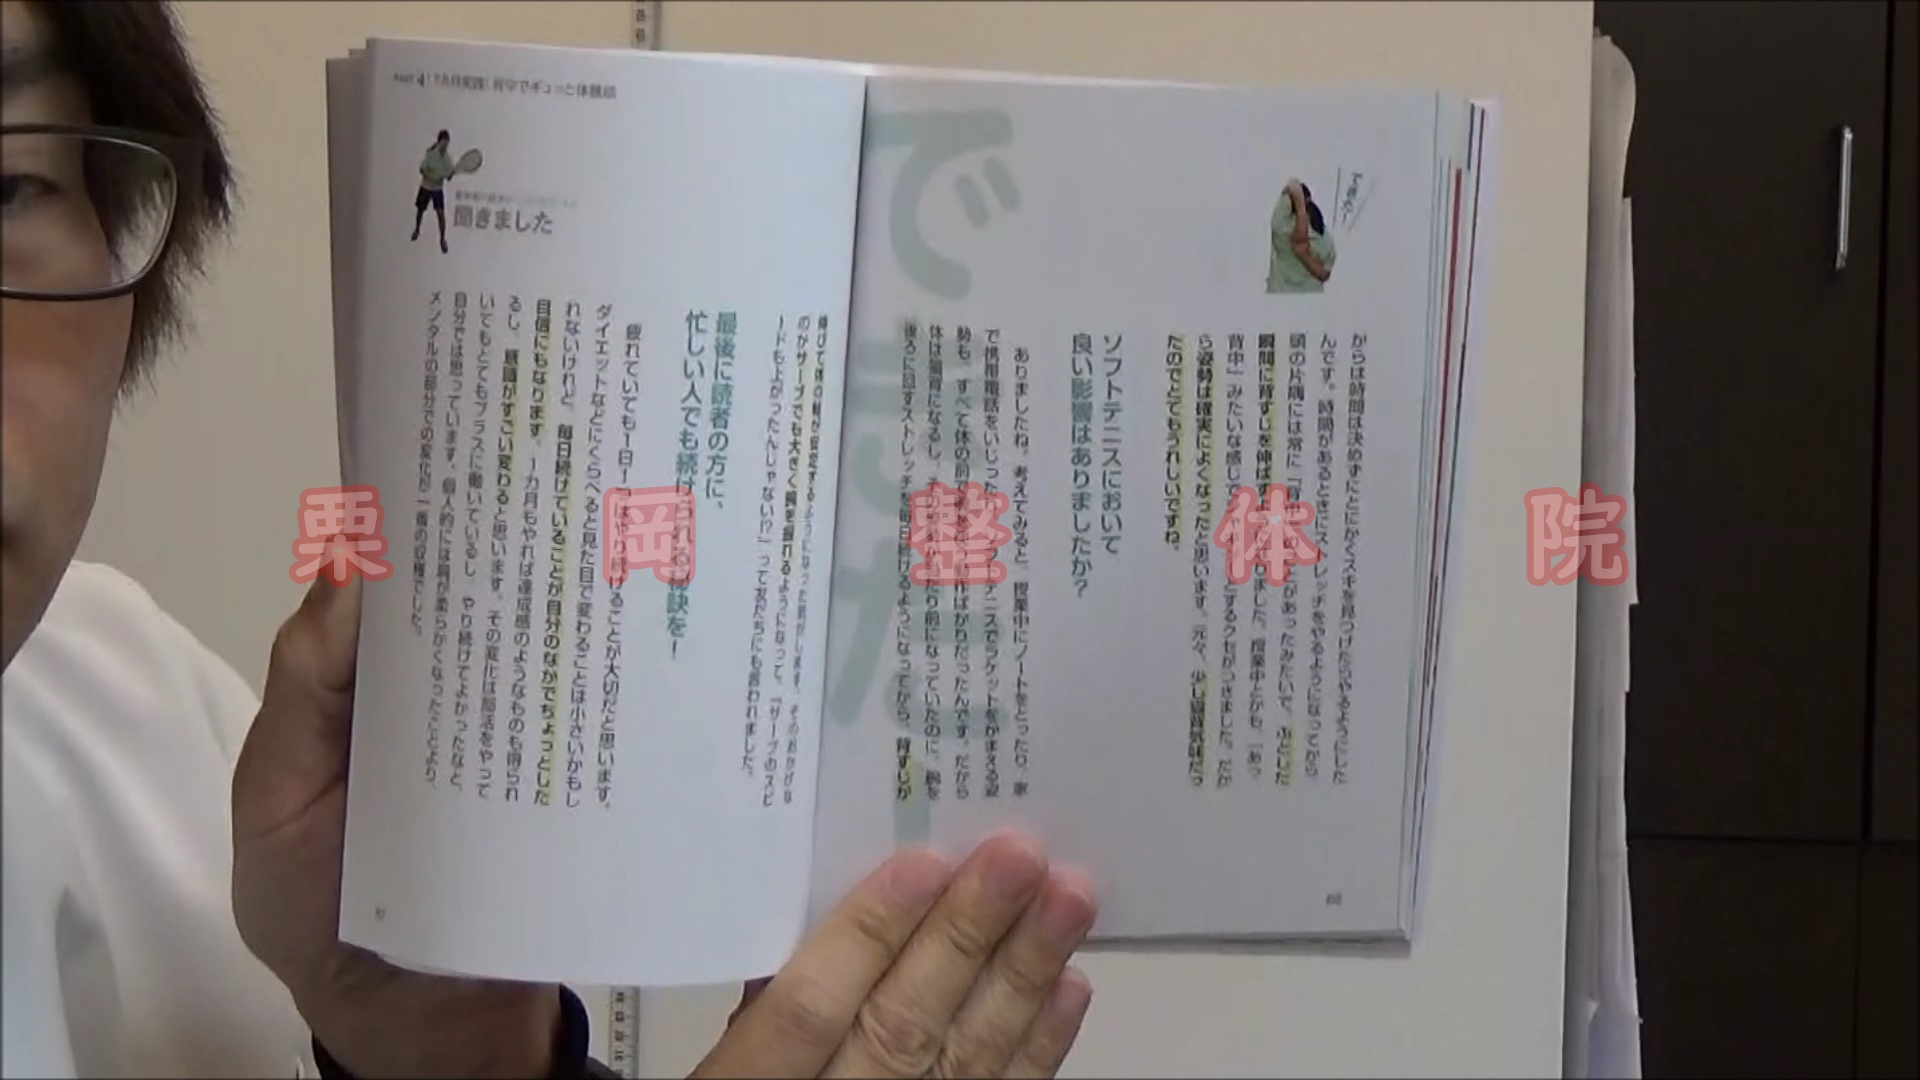 栗岡整体院
できた!
からは時間は決めずにとにかくスキを見つけたらやるようにした
んです。時間があるときにストレッチをやるようになってから
頭の片隅には常に
瞬間に背すじを伸ばす
背中」みたいな感じで
ら姿勢は確実によくなったと思います。元々、少し猫背気味だっ
たのでとてもうれしいですね。
ソフトテニスにおいて
良い影響はありましたか?
ありましたね。考えてみると、授業中にノートをとったり、家
で携帯電話をいじったり、ソフトテニスでラケットをかまえる姿
勢も、すべて体の前で
体は猫背になるし、
後ろに回すストレッチを毎日続けるようになってから、背すじが
伸びて体の軸が安定するようになった気がします。そのおかげな
のかサーブでも大きく腕を振れるようになって、『サーブのスピ
ードも上がったんじゃない!?』って友だちにも言われました。
最後に読者の方に、
忙しい人でも続けられる秘訣を!
疲れていても1日1
ダイエットなどにくらべると見た目で変わることは小さいかもし
れないけれど、毎日続けていることが自分のなかでちょっとした
自信にもなります。1カ月もやれば達成感のようなものも得られ
るし、意識がすごい変わると思います。その変化は部活をやって
いてもとてもプラスに働いているし、やり続けてよかったなと
自分では思っています。個人的には肩が柔らかくなったことより、
メンタルの部分での変化が一番の収穫でした。
聞きました